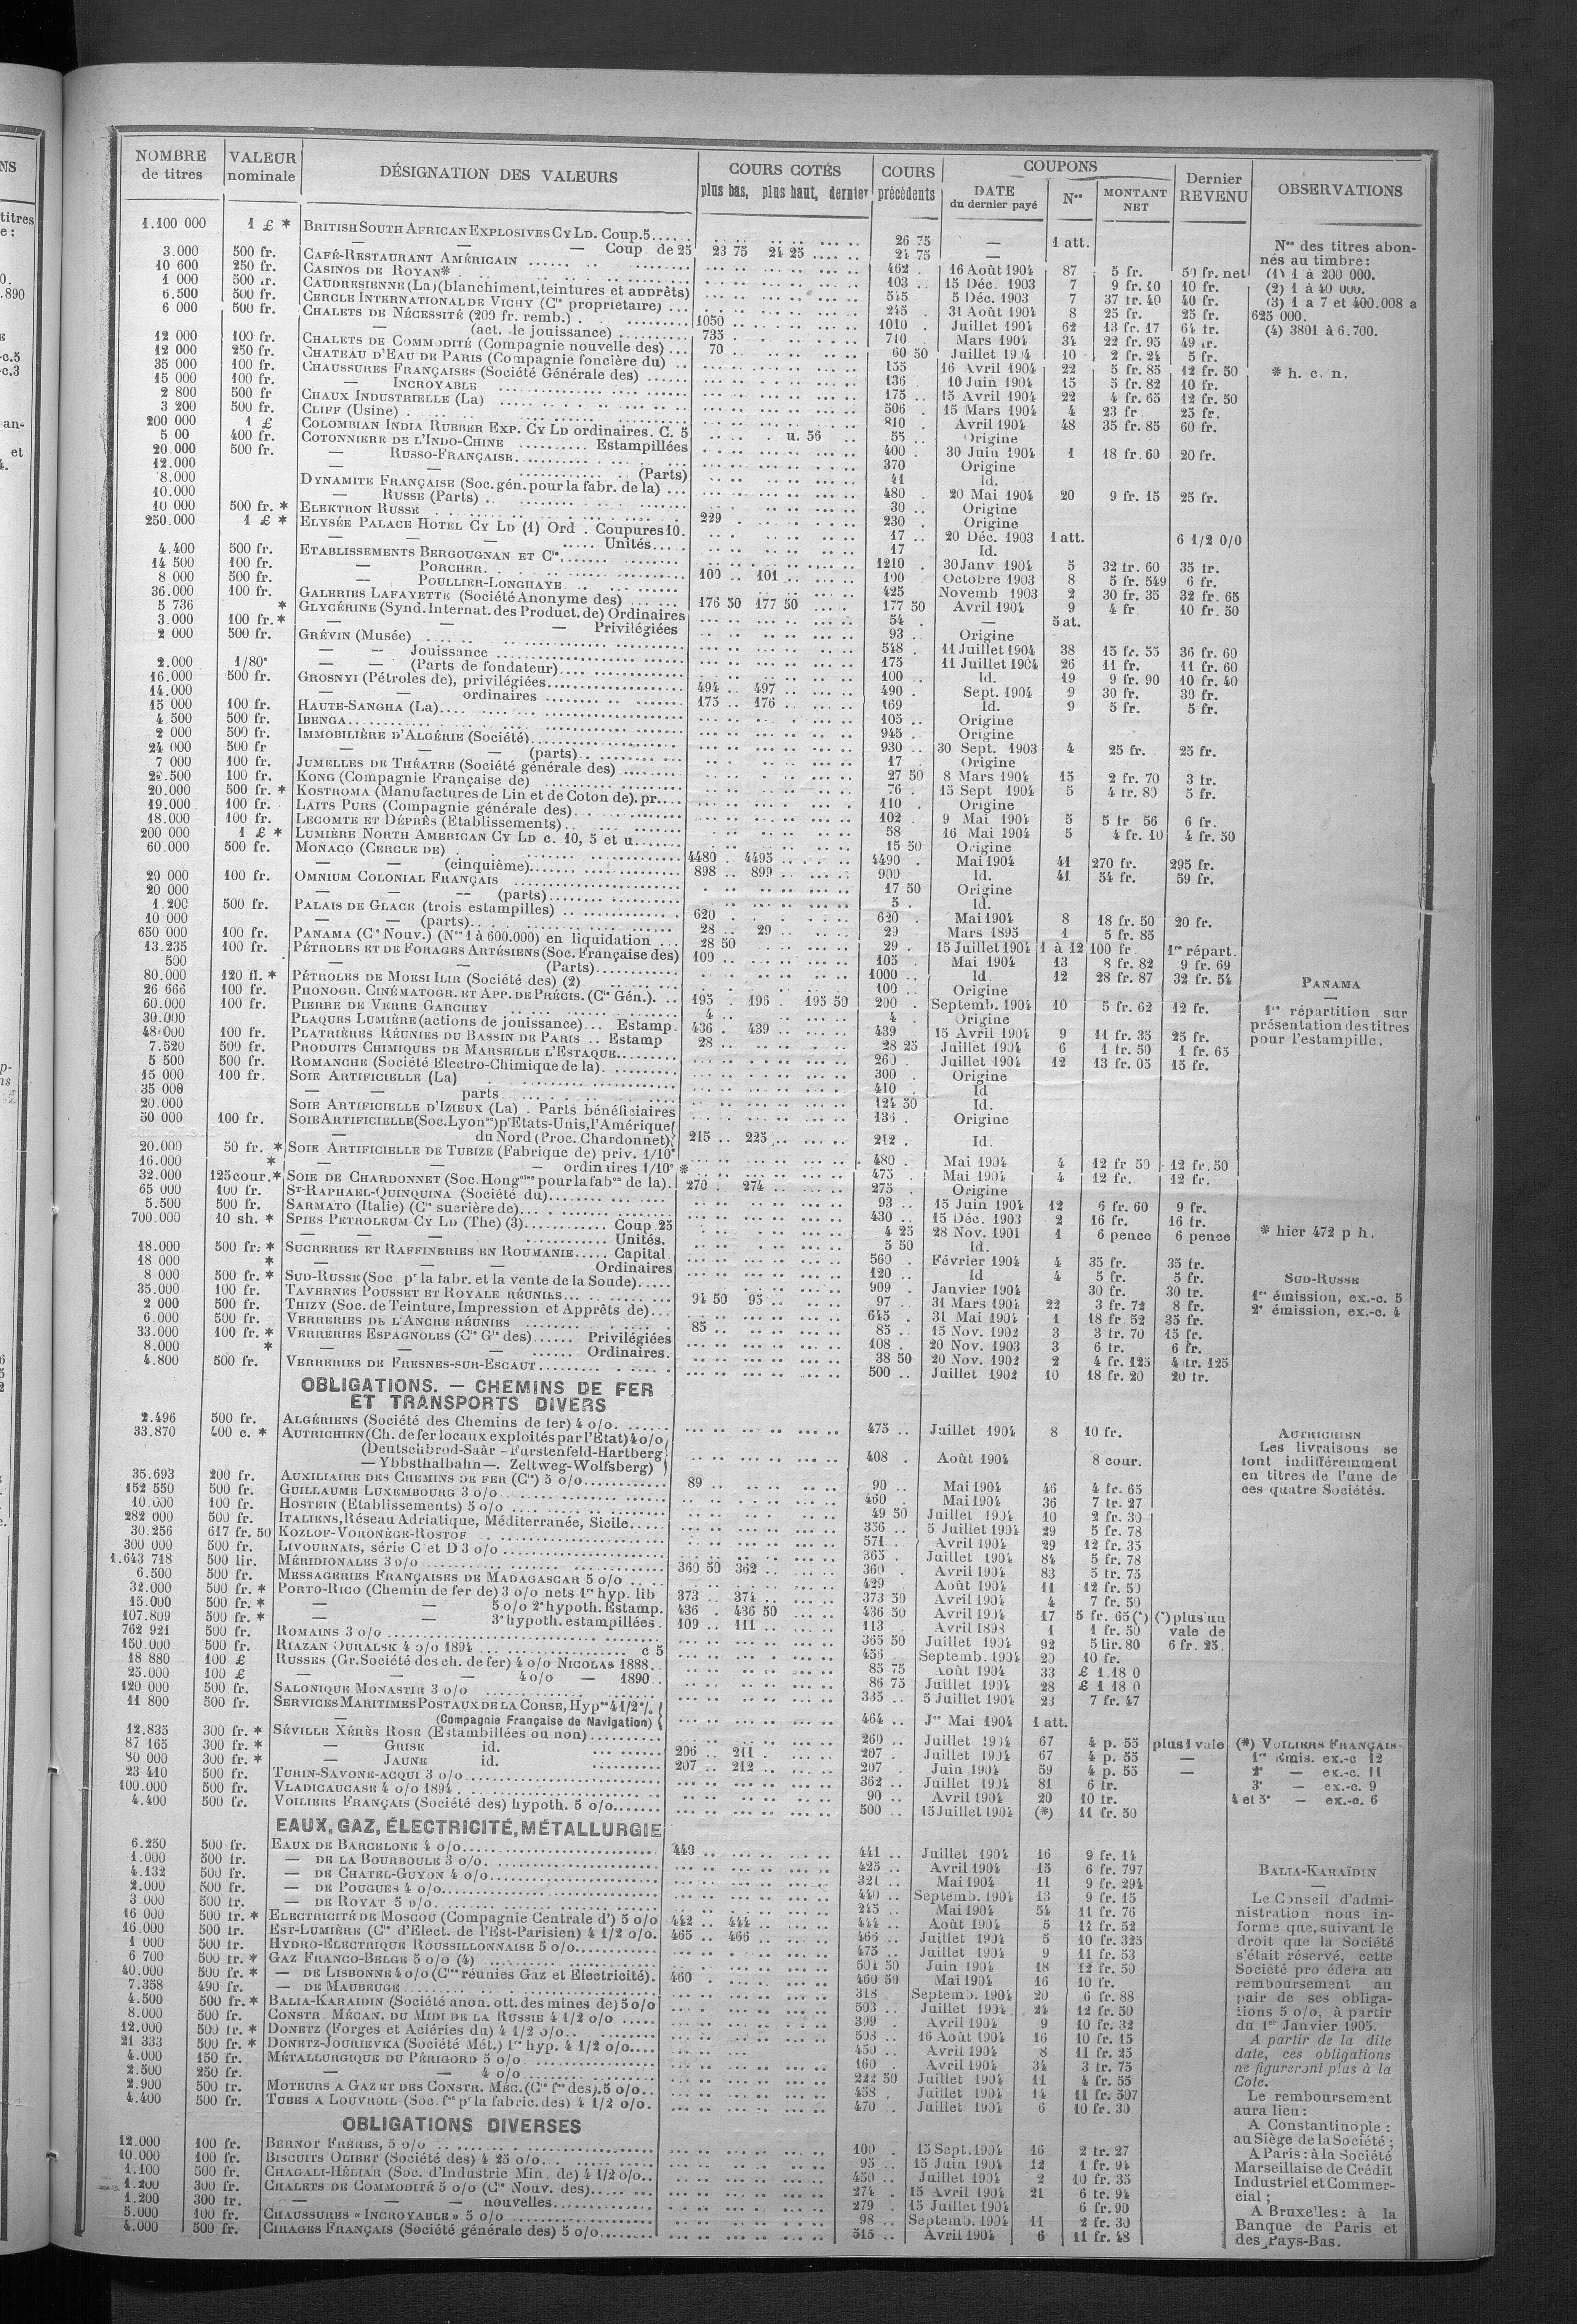 NOMBRE de titres | VALEUR nominale | DÉSIGNATION DES VALEURS | COURS COTÉS plus bas, plus haut, dernier | COURS précédents | COUPONS DATE du dernier payé | Nos | MONTANT NET | Dernier REVENU | OBSERVATIONS
1.100 000 1 £ * BRITISH SOUTH AFRICAN EXPLOSIVES CY LD. Coup. 5 26 75 — 1 att.
— — — Coup de 25 23 75 24 25 24 75 —
3.000 500 fr. CAFÉ-RESTAURANT AMÉRICAIN 462 16 Août 1904 87 5 fr. 50 fr. net
10 600 250 fr. CASINOS DE ROYAN* 103 15 Déc. 1903 7 9 fr. 10 fr.
1 000 500 fr. CAUDRESIENNE (La) (blanchiment, teintures et apprêts) 545 5 Déc. 1903 7 37 fr. 40 40 fr.
6.500 500 fr. CERCLE INTERNATIONAL DE VICHY (Cie propriétaire) 245 31 Août 1904 8 25 fr. 25 fr.
6 000 500 fr. CHALETS DE NÉCESSITÉ (209 fr. remb.) 1050 1010 Juillet 1904 62 13 fr. 17 64 fr.
— (act. de jouissance) 735 710 Mars 1904 34 22 fr. 95 49 fr.
12 000 100 fr. CHALETS DE COMMODITÉ (Compagnie nouvelle des) 70 60 50 Juillet 1904 10 2 fr. 24 5 fr.
12 000 250 fr. CHATEAU D'EAU DE PARIS (Compagnie foncière du) 155 16 Avril 1904 22 5 fr. 85 12 fr. 50
35 000 100 fr. CHAUSSURES FRANÇAISES (Société Générale des) 136 10 Juin 1904 15 5 fr. 82 10 fr.
15 000 100 fr. — INCROYABLE 175 15 Avril 1904 22 4 fr. 65 12 fr. 50
2 800 500 fr CHAUX INDUSTRIELLE (La) 506 15 Mars 1904 4 23 fr 25 fr.
3 200 500 fr. CLIFF (Usine) 810 Avril 1904 48 35 fr. 85 60 fr.
200 000 1 £ COLOMBIAN INDIA RUBBER EXP. CY LD ordinaires. C. 5 u. 56 55 Origine
5 00 400 fr. COTONNIERE DE L'INDO-CHINE Estampillées 400 30 Juin 1904 1 18 fr. 60 20 fr.
20.000 500 fr. — RUSSO-FRANÇAISE 370 Origine
12.000 — — (Parts) 41 Id.
8.000 DYNAMITE FRANÇAISE (Soc. gén. pour la fabr. de la) 480 20 Mai 1904 20 9 fr. 15 25 fr.
10.000 — RUSSE (Parts) 30 Origine
10 000 500 fr. * ELEKTRON RUSSE 229 230 Origine
250.000 1 £ * ELYSÉE PALACE HOTEL CY LD (1) Ord. Coupures 10. 17 20 Déc. 1903 1 att. 6 1/2 0/0
— — — Unités 17 Id.
4.400 500 fr. ETABLISSEMENTS BERGOUGNAN ET Cie 1210 30 Janv 1904 5 32 fr. 60 35 fr.
14 500 100 fr. — PORCHER 100 101 100 Octobre 1903 8 5 fr. 549 6 fr.
8 000 500 fr. — POULLIER-LONGHAYE 425 Novemb 1903 2 30 fr. 35 32 fr. 65
36.000 100 fr. GALERIES LAFAYETTE (Société Anonyme des) 176 50 177 50 177 50 Avril 1904 9 4 fr 10 fr. 50
5 736 * GLYCÉRINE (Synd. Internat. des Product. de) Ordinaires 54 — 5 at.
3.000 100 fr. * — — — Privilégiées 93 Origine
2 000 500 fr. GRÉVIN (Musée) 548 11 Juillet 1904 38 15 fr. 55 36 fr. 60
— — Jouissance 175 11 Juillet 1904 26 11 fr. 11 fr. 60
2.000 1/80e — — (Parts de fondateur) 100 Id. 19 9 fr. 90 10 fr. 40
16.000 500 fr. GROSNYI (Pétroles de), privilégiées 494 497 490 Sept. 1904 9 30 fr. 30 fr.
14.000 — — ordinaires 175 176 169 Id. 9 5 fr. 5 fr.
15 000 100 fr. HAUTE-SANGHA (La) 105 Origine
4.500 500 fr. IBENGA 945 Origine
2 000 500 fr. IMMOBILIÈRE D'ALGÉRIE (Société) 930 30 Sept. 1903 4 25 fr. 25 fr.
24 000 500 fr — — — (parts) 17 Origine
7 000 100 fr. JUMELLES DE THÉATRE (Société générale des) 27 50 8 Mars 1904 15 2 fr. 70 3 fr.
28.500 100 fr. KONG (Compagnie Française de) 76 15 Sept 1904 5 4 fr. 80 5 fr.
20.000 500 fr. * KOSTROMA (Manufactures de Lin et de Coton de). pr. 110 Origine
19.000 100 fr. LAITS PURS (Compagnie générale des) 102 9 Mai 1904 5 5 fr 56 6 fr.
18.000 100 fr. LECOMTE ET DÉPRÈS (Etablissements) 58 16 Mai 1904 5 4 fr. 10 4 fr. 50
200 000 1 £ * LUMIÈRE NORTH AMERICAN CY LD c. 10, 5 et u. 15 50 Origine
60.000 500 fr. MONACO (CERCLE DE) 4480 4495 4490 Mai 1904 41 270 fr. 295 fr.
— — (cinquième) 898 899 900 Id. 41 54 fr. 59 fr.
20 000 100 fr. OMNIUM COLONIAL FRANÇAIS 17 50 Origine
20 000 — — — (parts) 5 Id.
1.200 500 fr. PALAIS DE GLACE (trois estampilles) 620 620 Mai 1904 8 18 fr. 50 20 fr.
10 000 — — (parts) 28 29 29 Mars 1895 1 5 fr. 85
650 000 100 fr. PANAMA (Cie Nouv.) (Nos 1 à 600.000) en liquidation 28 50 29 15 Juillet 1904 1 à 12 100 fr 1re répart.
13.235 100 fr. PÉTROLES ET DE FORAGES ARTÉSIENS (Soc. Française des) 100 105 Mai 1904 13 8 fr. 82 9 fr. 69
500 — — (Parts) 1000 Id. 12 28 fr. 87 32 fr. 54
80.000 120 fl. * PÉTROLES DE MOESI ILIR (Société des) (2) 100 Origine
26 666 100 fr. PHONOGR. CINÉMATOGR. ET APP. DE PRÉCIS. (Cie Gén.) 195 196 195 50 200 Septemb. 1904 10 5 fr. 62 12 fr.
60.000 100 fr. PIERRE DE VERRE GARCHEY 4 4 Origine
30.000 PLAQUES LUMIÈRE (actions de jouissance) Estamp. 436 439 439 15 Avril 1904 9 11 fr. 35 25 fr.
48.000 100 fr. PLATRIÈRES RÉUNIES DU BASSIN DE PARIS Estamp 28 28 25 Juillet 1904 6 1 fr. 50 1 fr. 65
7.520 500 fr. PRODUITS CHIMIQUES DE MARSEILLE L'ESTAQUE 260 Juillet 1904 12 13 fr. 05 15 fr.
5 500 500 fr. ROMANCHE (Société Electro-Chimique de la) 300 Origine
15 000 100 fr. SOIE ARTIFICIELLE (La) 410 Id
35 000 — — parts 124 50 Id.
20.000 SOIE ARTIFICIELLE D'IZIEUX (La). Parts bénéficiaires 135 Origine
50 000 100 fr. SOIE ARTIFICIELLE (Soc. Lyonnse) pr Etats-Unis, l'Amérique
— du Nord (Proc. Chardonnet) 215 225 212 Id.
20.000 50 fr. * SOIE ARTIFICIELLE DE TUBIZE (Fabrique de) priv. 1/10e 480 Mai 1904 4 12 fr 50 12 fr. 50
16.000 * — — — ordinaires 1/10e * 475 Mai 1904 4 12 fr. 12 fr.
32.000 125 cour. * SOIE DE CHARDONNET (Soc. Hongoise pour la fabon de la) 270 274 275 Origine
65 000 100 fr. ST-RAPHAEL-QUINQUINA (Société du) 93 15 Juin 1904 12 6 fr. 60 9 fr.
5.500 500 fr. SARMATO (Italie) (Cie sucrière de) 430 15 Déc. 1903 2 16 fr. 16 fr.
700.000 10 sh. * SPIES PETROLEUM CY LD (The) (3) Coup 25 4 25 28 Nov. 1901 1 6 pence 6 pence
— — — Unités. 5 50 Id.
18.000 500 fr. * SUCRERIES ET RAFFINERIES EN ROUMANIE Capital 560 Février 1904 4 35 fr. 35 fr.
18 000 * — — — Ordinaires 120 Id 4 5 fr. 5 fr.
8 000 500 fr. * SUD-RUSSE (Soc. pr la fabr. et la vente de la Soude) 909 Janvier 1904 30 fr. 30 fr.
35.000 100 fr. TAVERNES POUSSET ET ROYALE RÉUNIES 94 50 95 97 31 Mars 1904 22 3 fr. 72 8 fr.
2 000 500 fr. THIZY (Soc. de Teinture, Impression et Apprêts de) 645 31 Mai 1904 1 18 fr 52 35 fr.
6.000 500 fr. VERRERIES DE L'ANCRE RÉUNIES 85 85 15 Nov. 1902 3 3 fr. 70 15 fr.
33.000 100 fr. * VERRERIES ESPAGNOLES (Cie Gle des) Privilégiées 108 20 Nov. 1903 3 6 fr. 6 fr.
8.000 * — — Ordinaires. 38 50 20 Nov. 1902 2 4 fr. 125 4 fr. 125
4.800 500 fr. VERRERIES DE FRESNES-SUR-ESCAUT 500 Juillet 1902 10 18 fr. 20 20 fr.
OBLIGATIONS. — CHEMINS DE FER
ET TRANSPORTS DIVERS
2.496 500 fr. ALGÉRIENS (Société des Chemins de fer) 4 o/o 475 Juillet 1904 8 10 fr.
33.870 400 c. * AUTRICHIEN (Ch. de fer locaux exploités par l'Etat) 4 o/o
(Deutschbrod-Saâr - Furstenfeld-Hartberg
— Ybbsthalbahn —. Zeltweg-Wolfsberg) 408 Août 1904 8 cour.
35.693 200 fr. AUXILIAIRE DES CHEMINS DE FER (Cie) 5 o/o 89 90 Mai 1904 46 4 fr. 65
152 550 500 fr. GUILLAUME LUXEMBOURG 3 o/o 460 Mai 1904 36 7 fr. 27
10.000 100 fr. HOSTEIN (Etablissements) 5 o/o 49 50 Juillet 1904 10 2 fr. 30
282 000 500 fr. ITALIENS, Réseau Adriatique, Méditerranée, Sicile 356 5 Juillet 1904 29 5 fr. 78
30.256 617 fr. 50 KOZLOF-VORONÈGE-ROSTOF 571 Avril 1904 29 12 fr. 35
300 000 500 fr. LIVOURNAIS, série C et D 3 o/o 365 Juillet 1904 84 5 fr. 78
1.643 718 500 lir. MÉRIDIONALES 3 o/o 360 50 362 360 Avril 1904 83 5 fr. 75
6.500 500 fr. MESSAGERIES FRANÇAISES DE MADAGASCAR 5 o/o 429 Août 1904 11 12 fr. 50
32.000 500 fr. * PORTO-RICO (Chemin de fer de) 3 o/o nets 1re hyp. lib 373 374 373 50 Avril 1904 4 7 fr. 50
15.000 500 fr. * — — 5 o/o 2e hypoth. Estamp. 436 436 50 436 50 Avril 1904 17 5 fr. 65 (*) (*) plus un
107.809 500 fr. * — — 3e hypoth. estampillées 109 111 113 Avril 1898 1 1 fr. 50 vale de
762 921 500 fr. ROMAINS 3 o/o 365 50 Juillet 1904 92 5 lir. 80 6 fr. 25.
150 000 500 fr. RIAZAN OURALSK 4 o/o 1894 c 5 456 Septemb. 1904 20 10 fr.
18 880 100 £ RUSSES (Gr. Société des ch. de fer) 4 o/o NICOLAS 1888 85 75 Août 1904 33 £ 1.18 0
25.000 100 £ — — — 4 o/o — 1890 86 75 Juillet 1904 28 £ 1 18 0
120 000 500 fr. SALONIQUE MONASTIR 3 o/o 335 5 Juillet 1904 23 7 fr. 47
11 800 500 fr. SERVICES MARITIMES POSTAUX DE LA CORSE, Hypre 4 1/2 %
— (Compagnie Française de Navigation) 464 Jce Mai 1904 1 att.
12.835 300 fr. * SÉVILLE XÉRÈS ROSE (Estambillées ou non) 260 Juillet 1904 67 4 p. 55 plus 1 vale
87 165 300 fr. * — GRISE id. 206 211 207 Juillet 1904 67 4 p. 55 —
80 000 300 fr. * — JAUNE id. 207 212 207 Juin 1904 59 4 p. 55 —
23 410 500 fr. TURIN-SAVONE-ACQUI 3 o/o 362 Juillet 1904 81 6 fr.
100.000 500 fr. VLADICAUCASE 4 o/o 1894 90 Avril 1904 20 10 fr.
4.400 500 fr. VOILIERS FRANÇAIS (Société des) hypoth. 5 o/o 500 15 Juillet 1904 (*) 11 fr. 50
EAUX, GAZ, ÉLECTRICITÉ, MÉTALLURGIE
6.250 500 fr. EAUX DE BARCELONE 4 o/o 440 441 Juillet 1904 16 9 fr. 14
1.000 500 fr. — DE LA BOURBOULE 3 o/o 425 Avril 1904 15 6 fr. 797
4.132 500 fr. — DE CHATEL-GUYON 4 o/o 321 Mai 1904 11 9 fr. 294
2.000 500 fr. — DE POUGUES 4 o/o 440 Septemb. 1904 13 9 fr. 15
3.000 500 fr. — DE ROYAT 5 o/o 245 Mai 1904 54 11 fr. 76
16 000 500 fr. * ELECTRICITÉ DE MOSCOU (Compagnie Centrale d') 5 o/o 442 444 444 Août 1904 5 12 fr. 52
16.000 500 fr. EST-LUMIÈRE (Cie d'Elect. de l'Est-Parisien) 4 1/2 o/o 465 466 466 Juillet 1904 5 10 fr. 325
1 000 500 fr. HYDRO-ELECTRIQUE ROUSSILLONNAISE 5 o/o 475 Juillet 1904 9 11 fr. 53
6 700 500 fr. * GAZ FRANCO-BELGE 5 o/o (4) 504 50 Juin 1904 18 12 fr. 50
40.000 500 fr. * — DE LISBONNE 4 o/o (Cies réunies Gaz et Electricité) 460 460 50 Mai 1904 16 10 fr.
7.358 490 fr. — DE MAUBEUGE 318 Septemb. 1904 20 6 fr. 88
4.500 500 fr. * BALIA-KARAIDIN (Société anon. ott. des mines de) 5 o/o 503 Juillet 1904 24 12 fr. 50
8.000 500 fr. CONSTR. MÉCAN. DU MIDI DE LA RUSSIE 4 1/2 o/o 399 Avril 1904 9 10 fr. 32
12.000 500 fr. * DONETZ (Forges et Aciéries du) 4 1/2 o/o 508 16 Août 1904 16 10 fr. 15
21 333 500 fr. * DONETZ-JOURIEVKA (Société Mét.) 1re hyp. 4 1/2 o/o 450 Avril 1904 8 11 fr. 25
4.000 150 fr. MÉTALLURGIQUE DU PÉRIGORD 5 o/o 160 Avril 1904 34 3 fr. 75
2.500 250 fr. — — 4 o/o 222 50 Juillet 1904 11 4 fr. 55
2.900 500 fr. MOTEURS A GAZ ET DES CONSTR. MÉC. (Cie fse des) 5 o/o 458 Juillet 1904 14 11 fr. 307
4.400 500 fr. TUBES A LOUVROIL (Soc. fse pr la fabric. des) 4 1/2 o/o 470 Juillet 1904 6 10 fr. 30
OBLIGATIONS DIVERSES
12.000 100 fr. BERNOT FRÈRES, 5 o/o 100 15 Sept. 1904 16 2 fr. 27
10.000 100 fr. BISCUITS OLIBET (Société des) 4 25 o/o 95 15 Juin 1904 12 1 fr. 94
1.100 500 fr. CHAGALI-HÉLIAR (Soc. d'Industrie Min. de) 4 1/2 o/o 450 Juillet 1904 2 10 fr. 35
1.200 300 fr. CHALETS DE COMMODITÉ 5 o/o (Cie Nouv. des) 274 15 Avril 1904 21 6 fr. 94
1.200 300 fr. — — — nouvelles 279 15 Juillet 1904 6 fr. 90
5.000 100 fr. CHAUSSURES « INCROYABLE » 5 o/o 98 Septemb. 1904 11 2 fr. 30
4.000 500 fr. CIRAGES FRANÇAIS (Société générale des) 5 o/o 515 Avril 1904 6 11 fr. 48
Nos des titres abonnés au timbre:
(1) 1 à 200 000.
(2) 1 à 40 000.
(3) 1 a 7 et 400.008 a
625 000.
(4) 3801 à 6.700.
* h. c. n.
PANAMA
1re répartition sur
présentation des titres
pour l'estampille.
* hier 472 p h.
SUD-RUSSE
1re émission, ex.-c. 5
2e émission, ex.-c. 4
AUTRICHIEN
Les livraisons se
font indifféremment
en titres de l'une de
ces quatre Sociétés.
(*) VOILIERS FRANÇAIS
1re émis. ex.-c 12
2e — ex.-c. 11
3e — ex.-c. 9
4 et 5e — ex.-c. 6
BALIA-KARAÏDIN
Le Conseil d'admi-
nistration nous in-
forme que, suivant le
droit que la Société
s'était réservé, cette
Société procédera au
remboursement au
pair de ses obliga-
tions 5 o/o, à partir
du 1er Janvier 1905.
A partir de la dite
date, ces obligations
ne figureront plus à la
Cote.
Le remboursement
aura lieu :
A Constantinople :
au Siège de la Société ;
A Paris : à la Société
Marseillaise de Crédit
Industriel et Commer-
cial ;
A Bruxelles : à la
Banque de Paris et
des Pays-Bas.